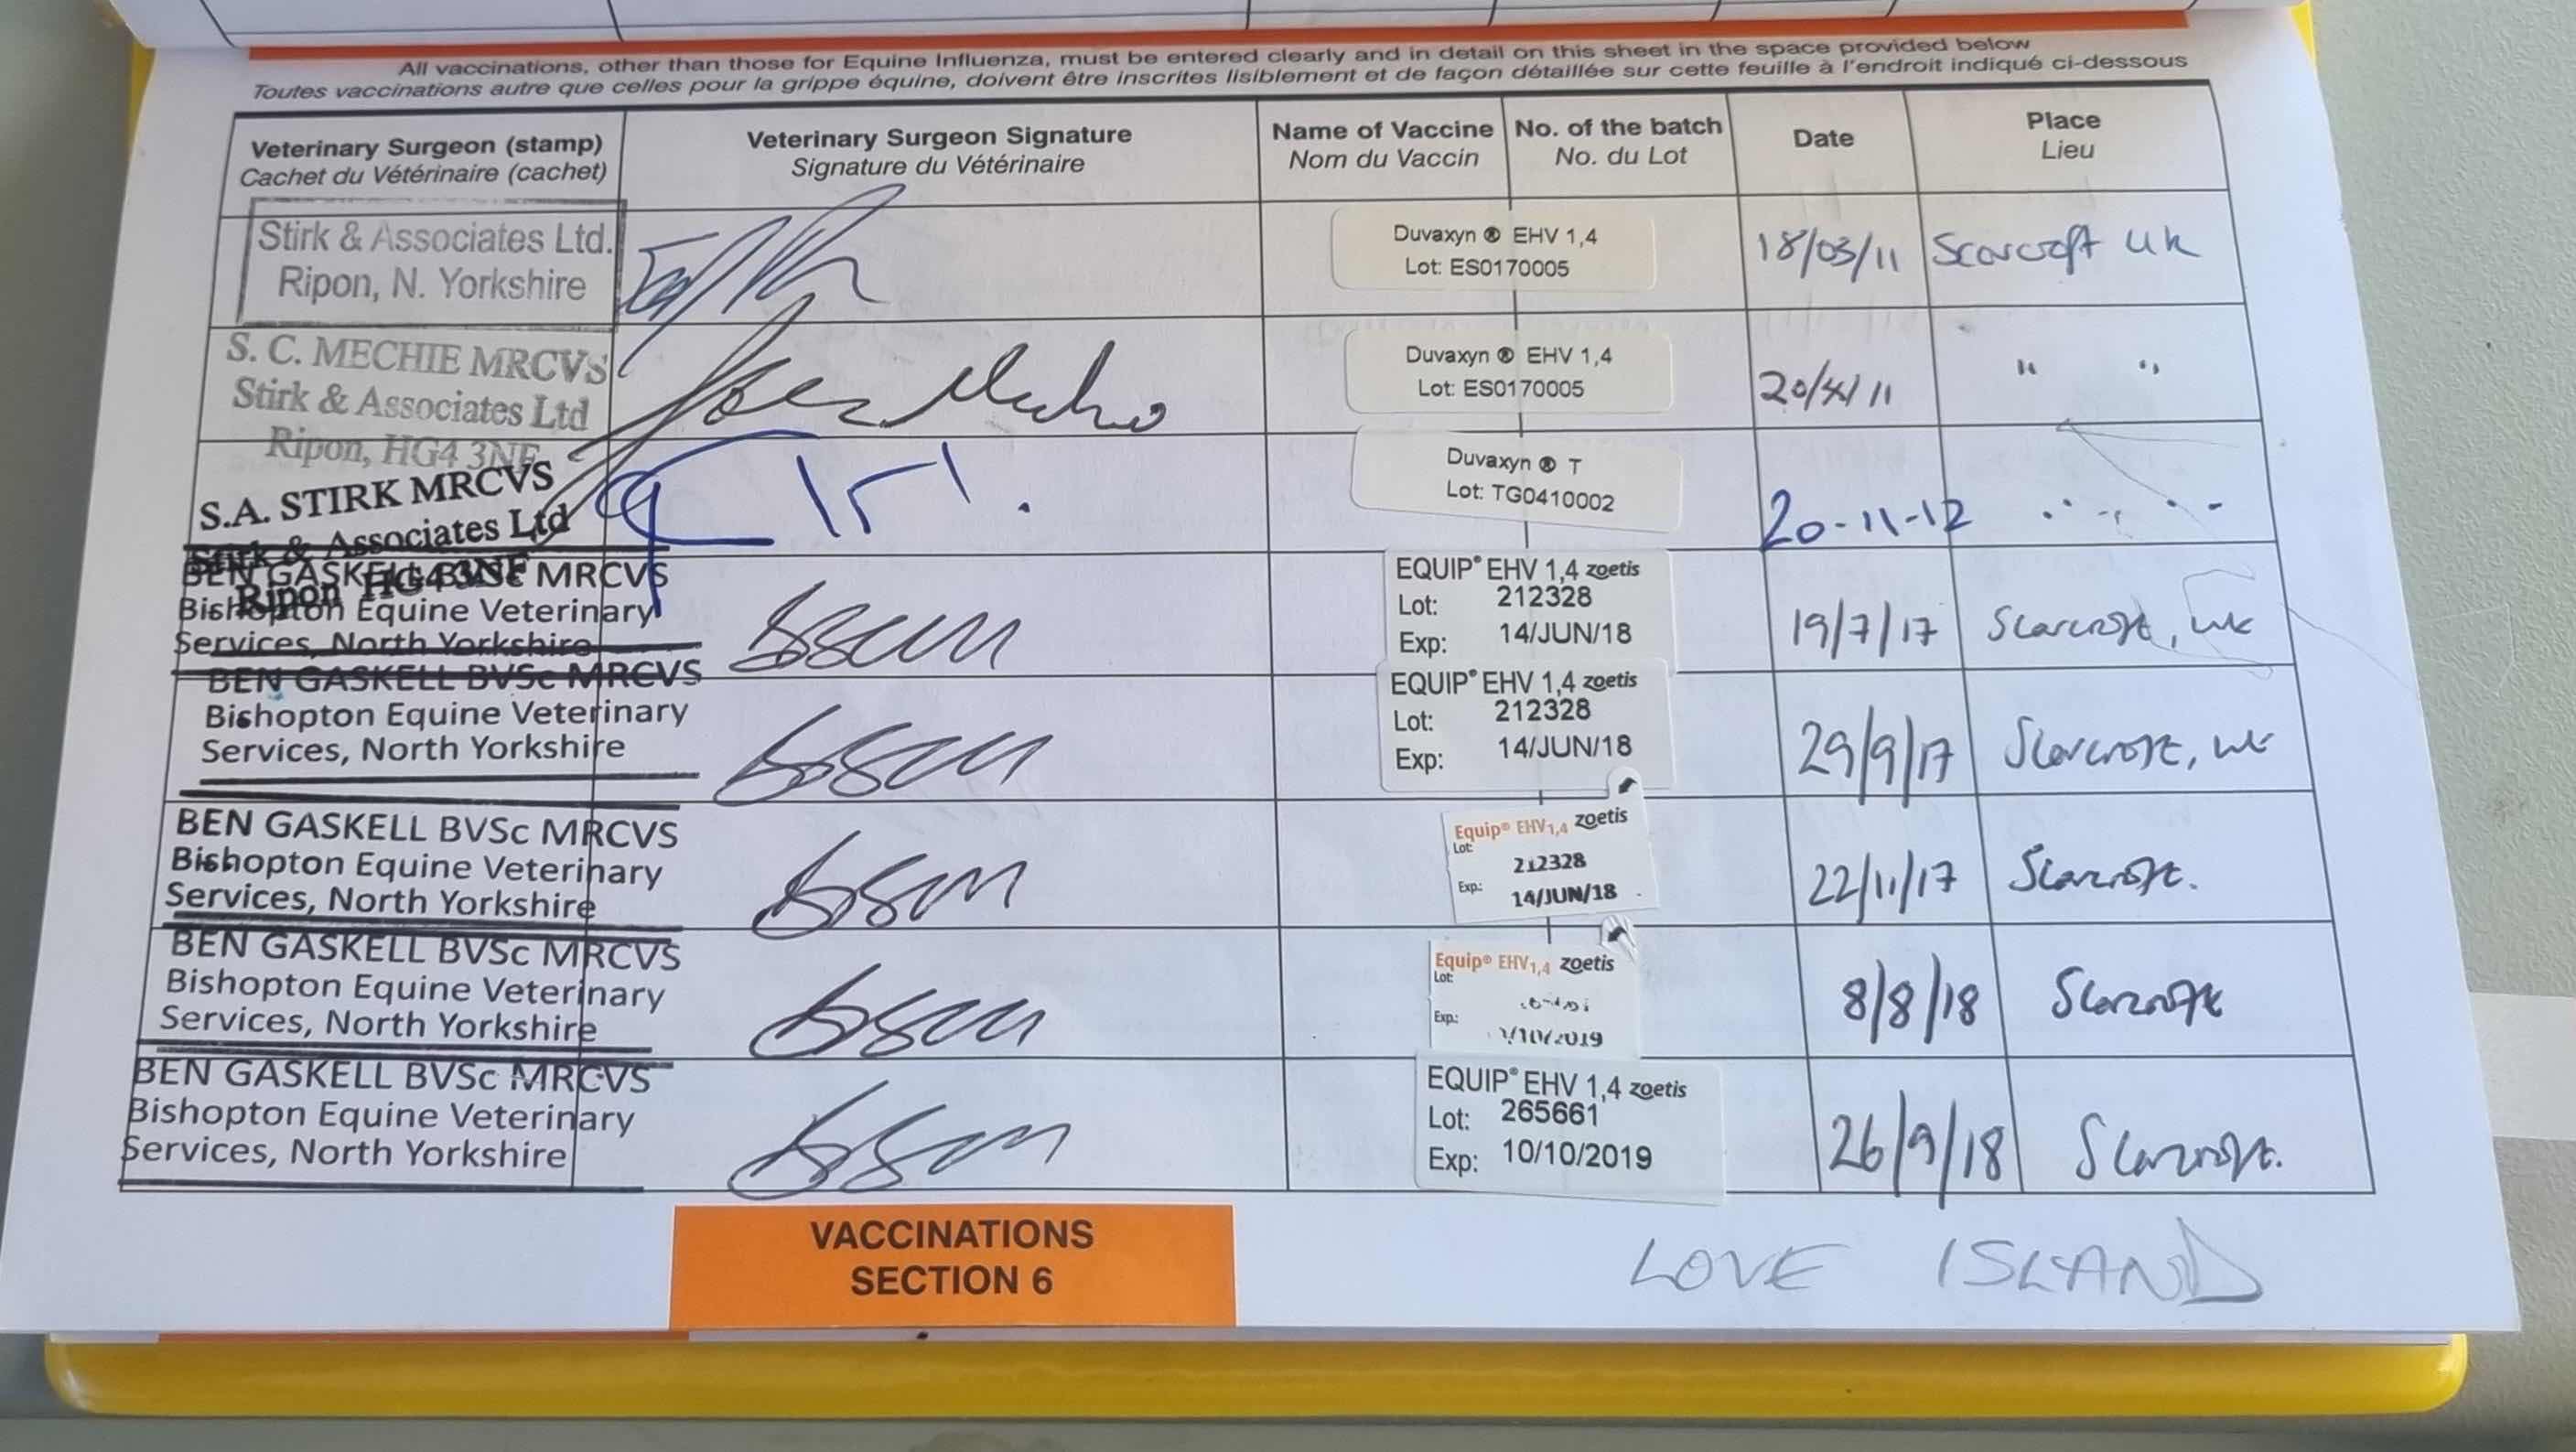 All vaccinations, other than those for Equine Influenza, must be entered clearly and in detail on this sheet in the space provided below
Toutes vaccinations autre que celles pour la grippe équine, doivent être inscrites lisiblement et de façon détaillée sur cette feuille à l'endroit indiqué ci-dessous
Veterinary Surgeon (stamp)
Cachet du Vétérinaire (cachet)
Veterinary Surgeon Signature
Signature du Vétérinaire
Name of Vaccine
Nom du Vaccin
No. of the batch
No. du Lot
Date
Place
Lieu
Stirk & Associates Ltd.
Ripon, N. Yorkshire
Duvaxyn ® EHV 1,4
Lot: ES0170005
18/03/11
Scarcroft UK
S. C. MECHIE MRCVS
Stirk & Associates Ltd
Ripon, HG4 3NF
Duvaxyn ® EHV 1,4
Lot: ES0170005
" "
S.A. STIRK MRCVS
Stirk & Associates Ltd
Ripon HG4 3NF
Duvaxyn ® T
Lot: TG0410002
20-11-12
BEN GASKELL BVSc MRCVS
Bishopton Equine Veterinary
Services, North Yorkshire
EQUIP® EHV 1,4 zoetis
Lot: 212328
Exp: 14/JUN/18
19/7/17
Scarcroft, UK
BEN GASKELL BVSc MRCVS
Bishopton Equine Veterinary
Services, North Yorkshire
EQUIP® EHV 1,4 zoetis
Lot: 212328
Exp: 14/JUN/18
29/9/17
Scarcroft, UK
BEN GASKELL BVSc MRCVS
Bishopton Equine Veterinary
Services, North Yorkshire
Equip® EHV1,4 zoetis
Lot:
212328
Exp.: 14/JUN/18
22/11/17
Scarcroft.
BEN GASKELL BVSc MRCVS
Bishopton Equine Veterinary
Services, North Yorkshire
Equip® EHV1,4 zoetis
Lot:
Exp.:
8/8/18
Scarcroft
BEN GASKELL BVSc MRCVS
Bishopton Equine Veterinary
Services, North Yorkshire
EQUIP® EHV 1,4 zoetis
Lot: 265661
Exp: 10/10/2019
26/9/18
Scarcroft.
VACCINATIONS
SECTION 6
LOVE ISLAND